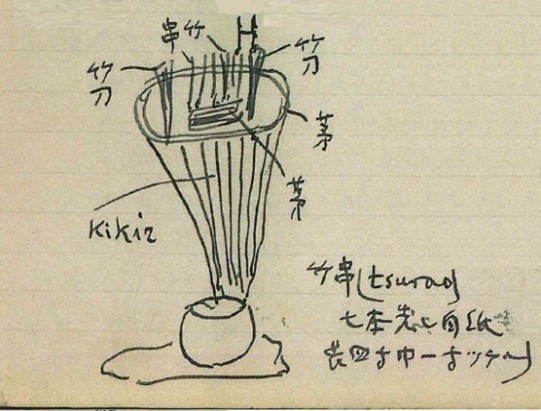 串竹
竹刀
竹刀
茅
茅
Kikiz
竹串(tsurao)
七本先ニ白紙
長四寸巾一寸ツケル